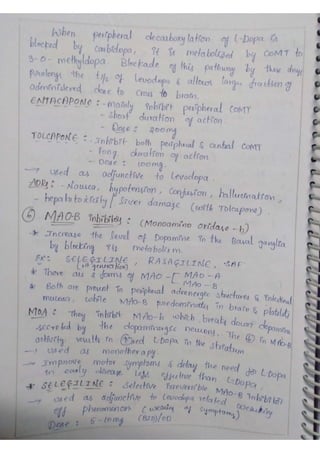 When peripheral decarboxylation of L-Dopa is
blocked by carbidopa, it is metabolized by COMT to
3-O-methyldopa Blockade of this pathway by these drugs
Prolongs the t½ of Levodopa & allows large fraction of
administered dose to cross to brain.
ENTACAPONE :- mainly inhibit peripheral COMT
- Short duration of action.
- Dose : 200mg
TOLCAPONE :- Inhibit both peripheral & central COMT
- long duration of action
- Dose : 100mg.
→ used as adjunctive to Levodopa.
ADRs :- Nausea, hypotension, Confusion, hallucination,
- hepatotoxicity / Liver damage (with Tolcapone)
⑥ MAO-B Inhibitors : (Monoamino oxidase - b)
* Increase the level of Dopamine in the Basal ganglia
by blocking its metabolism.
Ex: SELEGILINE, RASAGILINE, SAF
(1st generation)
* There are 2 forms of MAO -[ MAO - A
MAO - B
* Both are present in peripheral adrenergic structures & Intestinal
mucosa, while MAO-B predominates in brain & platelets
MOA : They inhibit MAO-b which breaks down dopamine
secreted by the dopaminergic neurons. The ↓ in MAO-B
activity results in L.Dopa in the striatum
→ used as monotherapy.
→ Improve motor symptoms & delay the need for L.Dopa
in early disease less effective than L.Dopa.
* SELEGILINE : Selective irreversible MAO-B Inhibitor
→ used as adjunctive to Levodopa related
off phenomenon ( of symptoms)
Dose : 5-10mg (BID)/OD